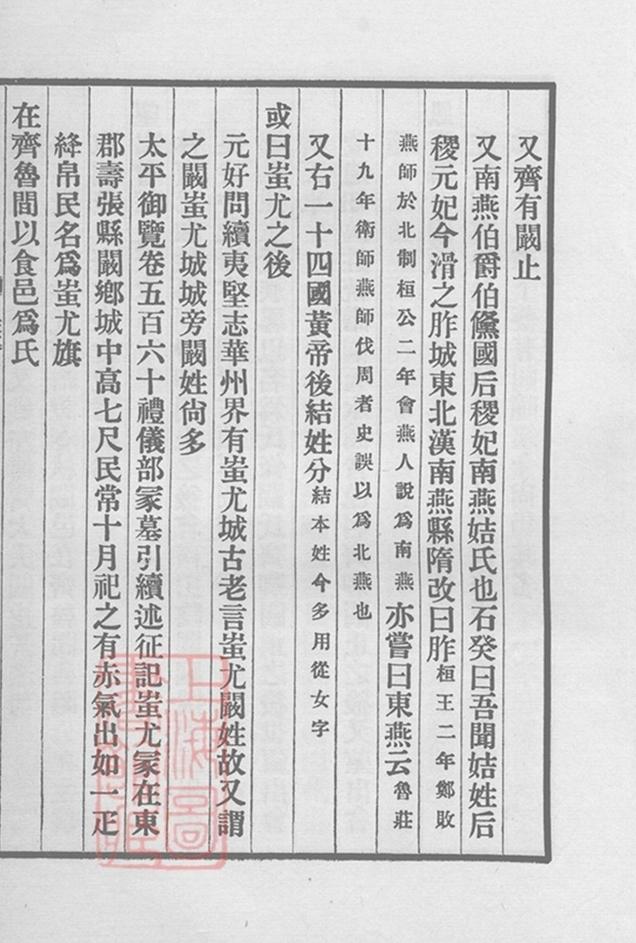 又齊有闞止
又南燕伯爵伯儵國后稷妃南燕姞氏也石癸曰吾聞姞姓后
稷元妃今滑之胙城東北漢南燕縣隋改曰胙桓王二年鄭敗
燕師於北制桓公二年會燕人說爲南燕亦嘗曰東燕云魯莊
十九年衞師燕師伐周者史誤以爲北燕也
又右一十四國黃帝後結姓分結本姓今多用從女字
或曰蚩尤之後
元好問續夷堅志華州界有蚩尤城古老言蚩尤闞姓故又謂
之闞蚩尤城城旁闞姓尙多
太平御覽卷五百六十禮儀部冢墓引續述征記蚩尤冢在東
郡壽張縣闞鄉城中高七尺民常十月祀之有赤氣出如一疋
絳帛民名爲蚩尤旗
在齊魯間以食邑爲氏